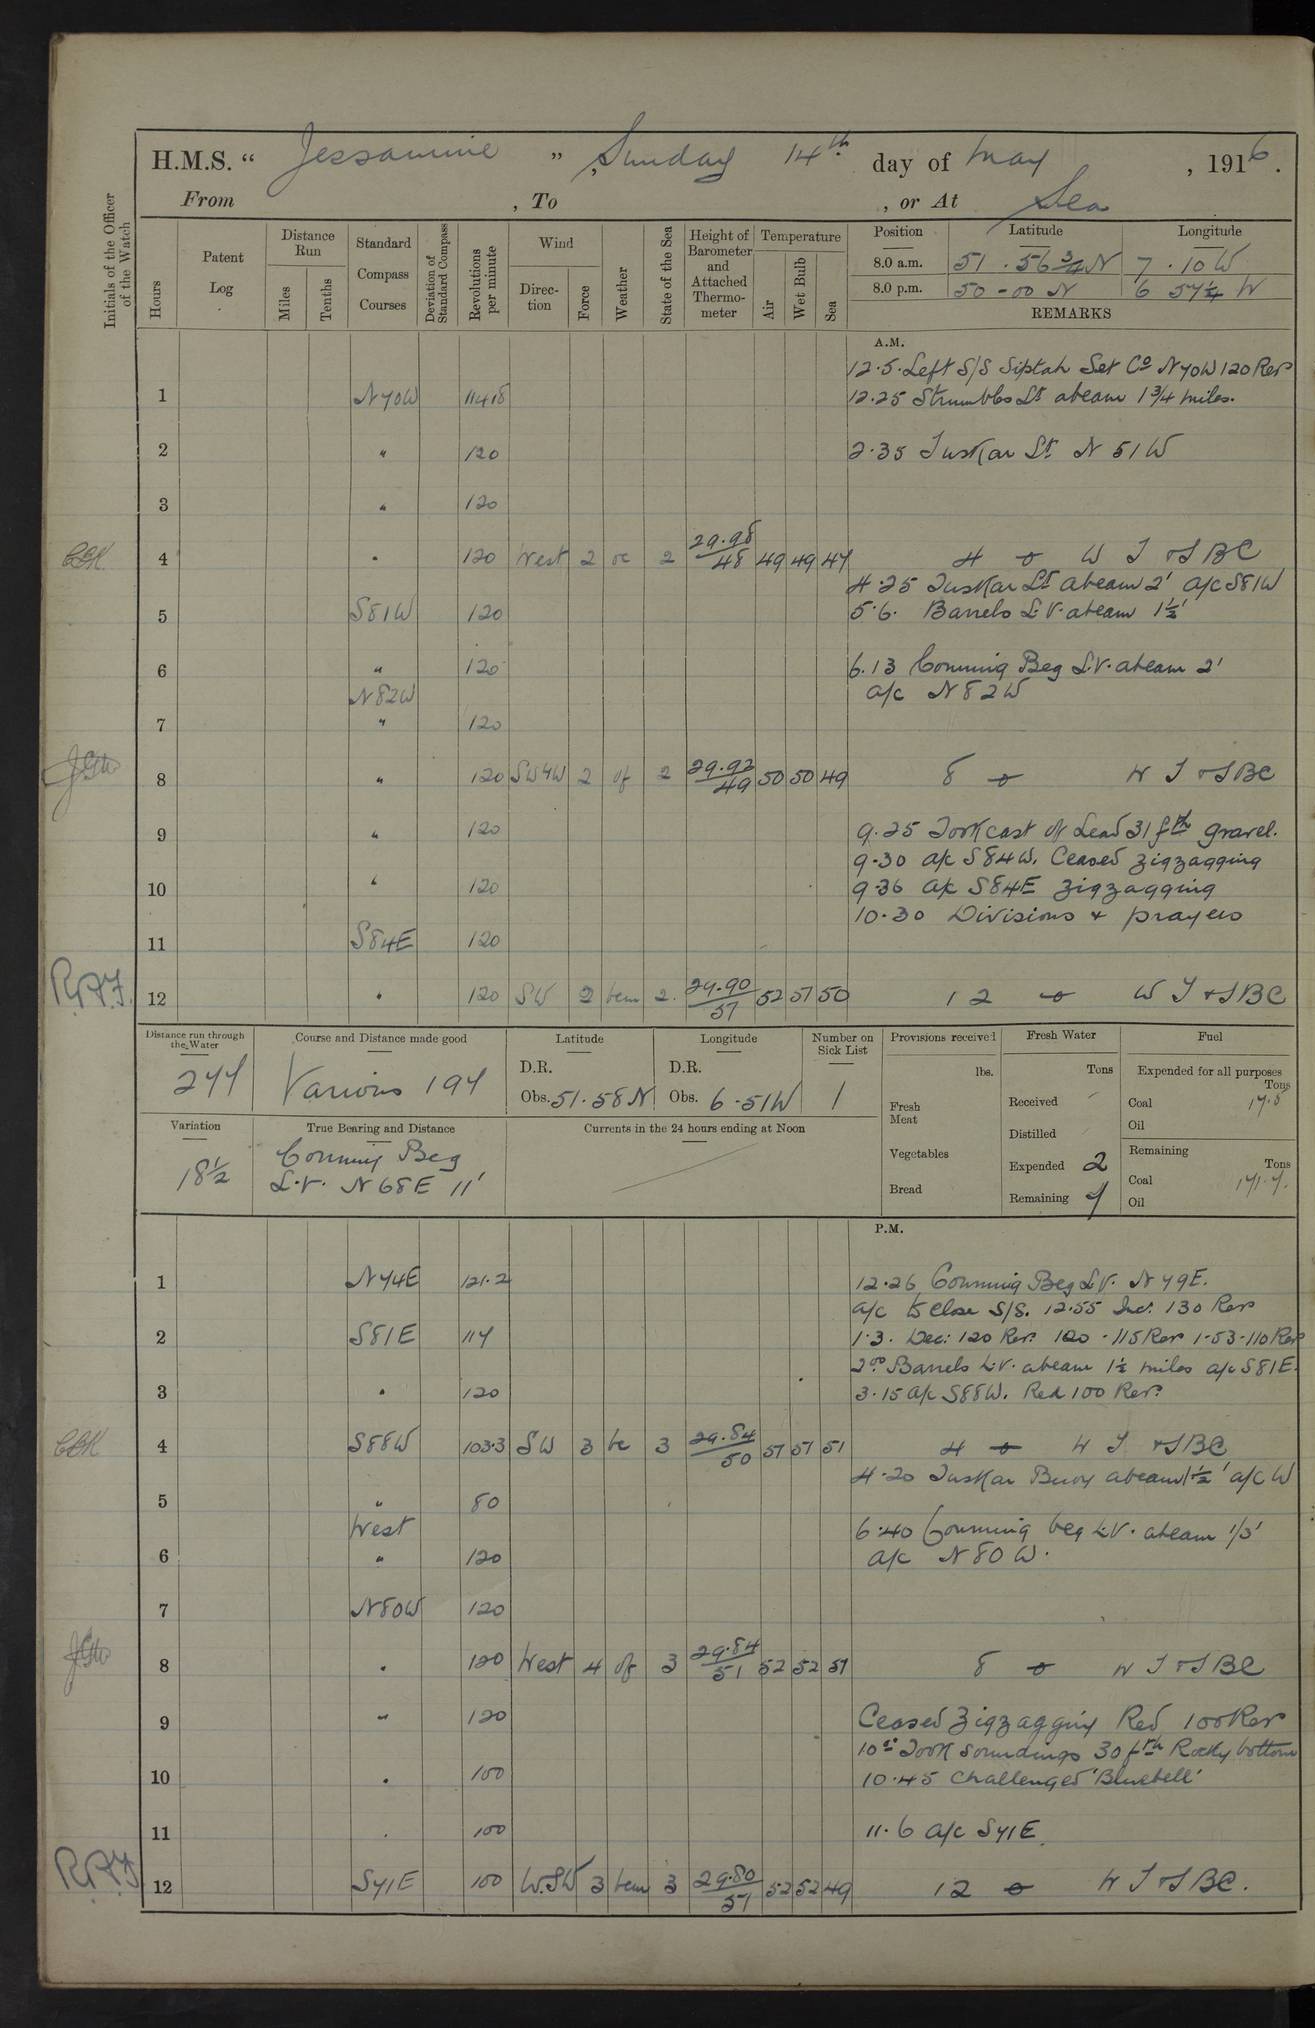 H.M.S. " Jessamine ", Sunday 14th day of May, 1916.
From , To , or At Sea
Initials of the Officer of the Watch
Hours
Patent Log
Distance Run
Miles
Tenths
Standard Compass Courses
Deviation of Standard Compass
Revolutions per minute
Wind
Direction
Force
Weather
State of the Sea
Height of Barometer and Attached Thermometer
Temperature
Air
Wet Bulb
Sea
Position Latitude Longitude
8.0 a.m. 51 . 56 3/4 N 7 . 10 W
8.0 p.m. 50 - 00 N 6 57 1/4 W
REMARKS
A.M.
12.5. Left S/S Siptah Set Co N70W 120 Revs
1 N70W 114.8 12.25 Strumbles Lt abeam 1 3/4 miles.
2 " 120 2.35 Tuskar Lt N 51 W
3 " 120
4 " 120 West 2 oc 2 29.98/48 49 49 47 4 W T & S B C
4.25 Tuskar Lt abeam 2' a/c S81W
5 S81W 120 5.6. Barrels L.V. abeam 1½'
6 " 120 6.13 Conning Beg L.V. abeam 2'
N82W a/c N82W
7 " 120
8 " 120 SW4W 2 of 2 29.92/49 50 50 49 8 W T & S B C
9 " 120 9.25 Took cast of Lead 31 fth gravel.
9.30 a/c S84W. Ceased zigzagging
10 " 120 9.36 a/c S84E zigzagging
10.30 Divisions & prayers
11 S84E 120
RAJ. 12 " 120 SW 2 bcm 2. 29.90/51 52 51 50 12 W T & S B C
Distance run through the Water
244
Course and Distance made good
Various 194
Latitude
D.R.
Obs. 51.58 N
Longitude
D.R.
Obs. 6.51 W
Number on Sick List
1
Provisions received
lbs.
Fresh Meat
Vegetables
Bread
Fresh Water
Tons
Received
Distilled
Expended 2
Remaining 7
Fuel
Expended for all purposes
Tons
Coal 17.8
Oil
Remaining
Tons
Coal 171.7.
Oil
Variation
18½
True Bearing and Distance
Conning Beg
L.V. N68E 11'
Currents in the 24 hours ending at Noon
P.M.
1 N74E 121.2 12.26 Conning Beg L.V. N79E.
a/c to close S/S. 12.55 Inc: 130 Revs
2 S81E 117 1.3. Dec: 120 Revs 120 - 115 Rev 1-53-110 Rev
2.00 Barrels L.V. abeam 1½ miles a/c S81E.
3 " 120 3.15 a/c S88W. Red 100 Revs
4 S88W 103.3 SW 3 bc 3 29.84/50 51 51 51 4 W T & S B C
4.20 Tuskar Buoy abeam 1½' a/c W
5 " 80
West 6.40 Conning beg L.V. abeam 1/3'
6 " 120 a/c N80W.
7 N80W 120
8 " 120 West 4 of 3 29.84/51 52 52 51 8 W T & S B C
9 " 120 Ceased Zigzagging Red 100 Revs
10.5 Took soundings 30 fth Rocky bottom
10 " 100 10.45 Challenged 'Bluebell'
11 " 100 11.6 a/c S71E
RAJ 12 S71E 100 W.SW 3 bcm 3 29.80/51 52 52 49 12 W T & S B C.